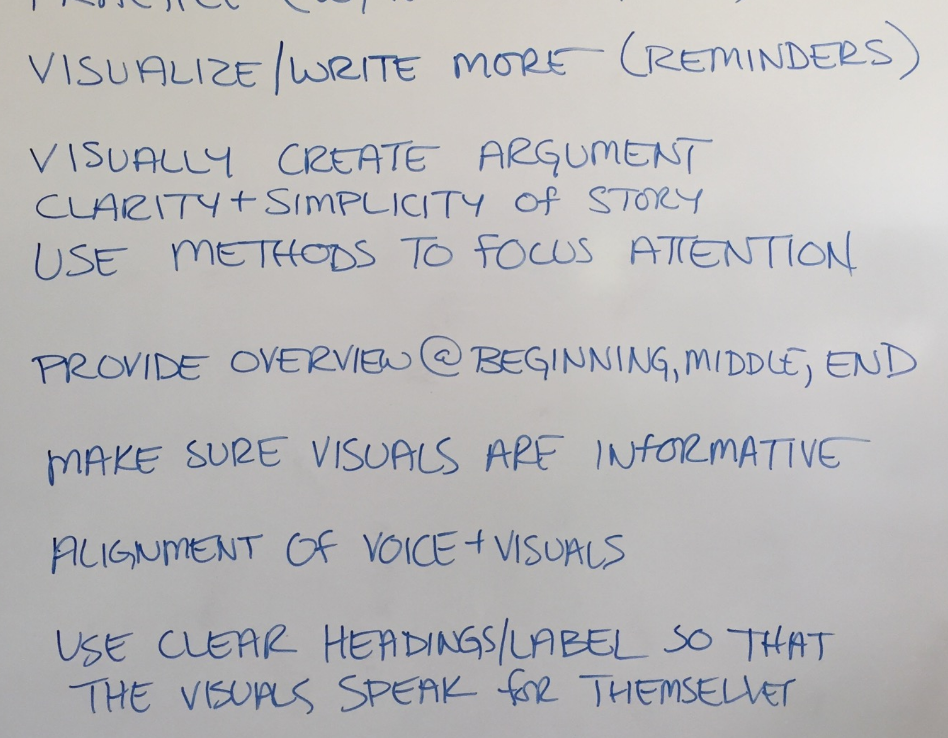 VISUALIZE/WRITE MORE (REMINDERS)
VISUALLY CREATE ARGUMENT
CLARITY + SIMPLICITY Of STORY
USE METHODS TO FOCUS ATTENTION
PROVIDE OVERVIEW @ BEGINNING, MIDDLE, END
MAKE SURE VISUALS ARE INfORMATIVE
ALIGNMENT OF VOICE + VISUALS
USE CLEAR HEADINGS/LABEL SO THAT
THE VISUALS SPEAK foR THEMSELVES